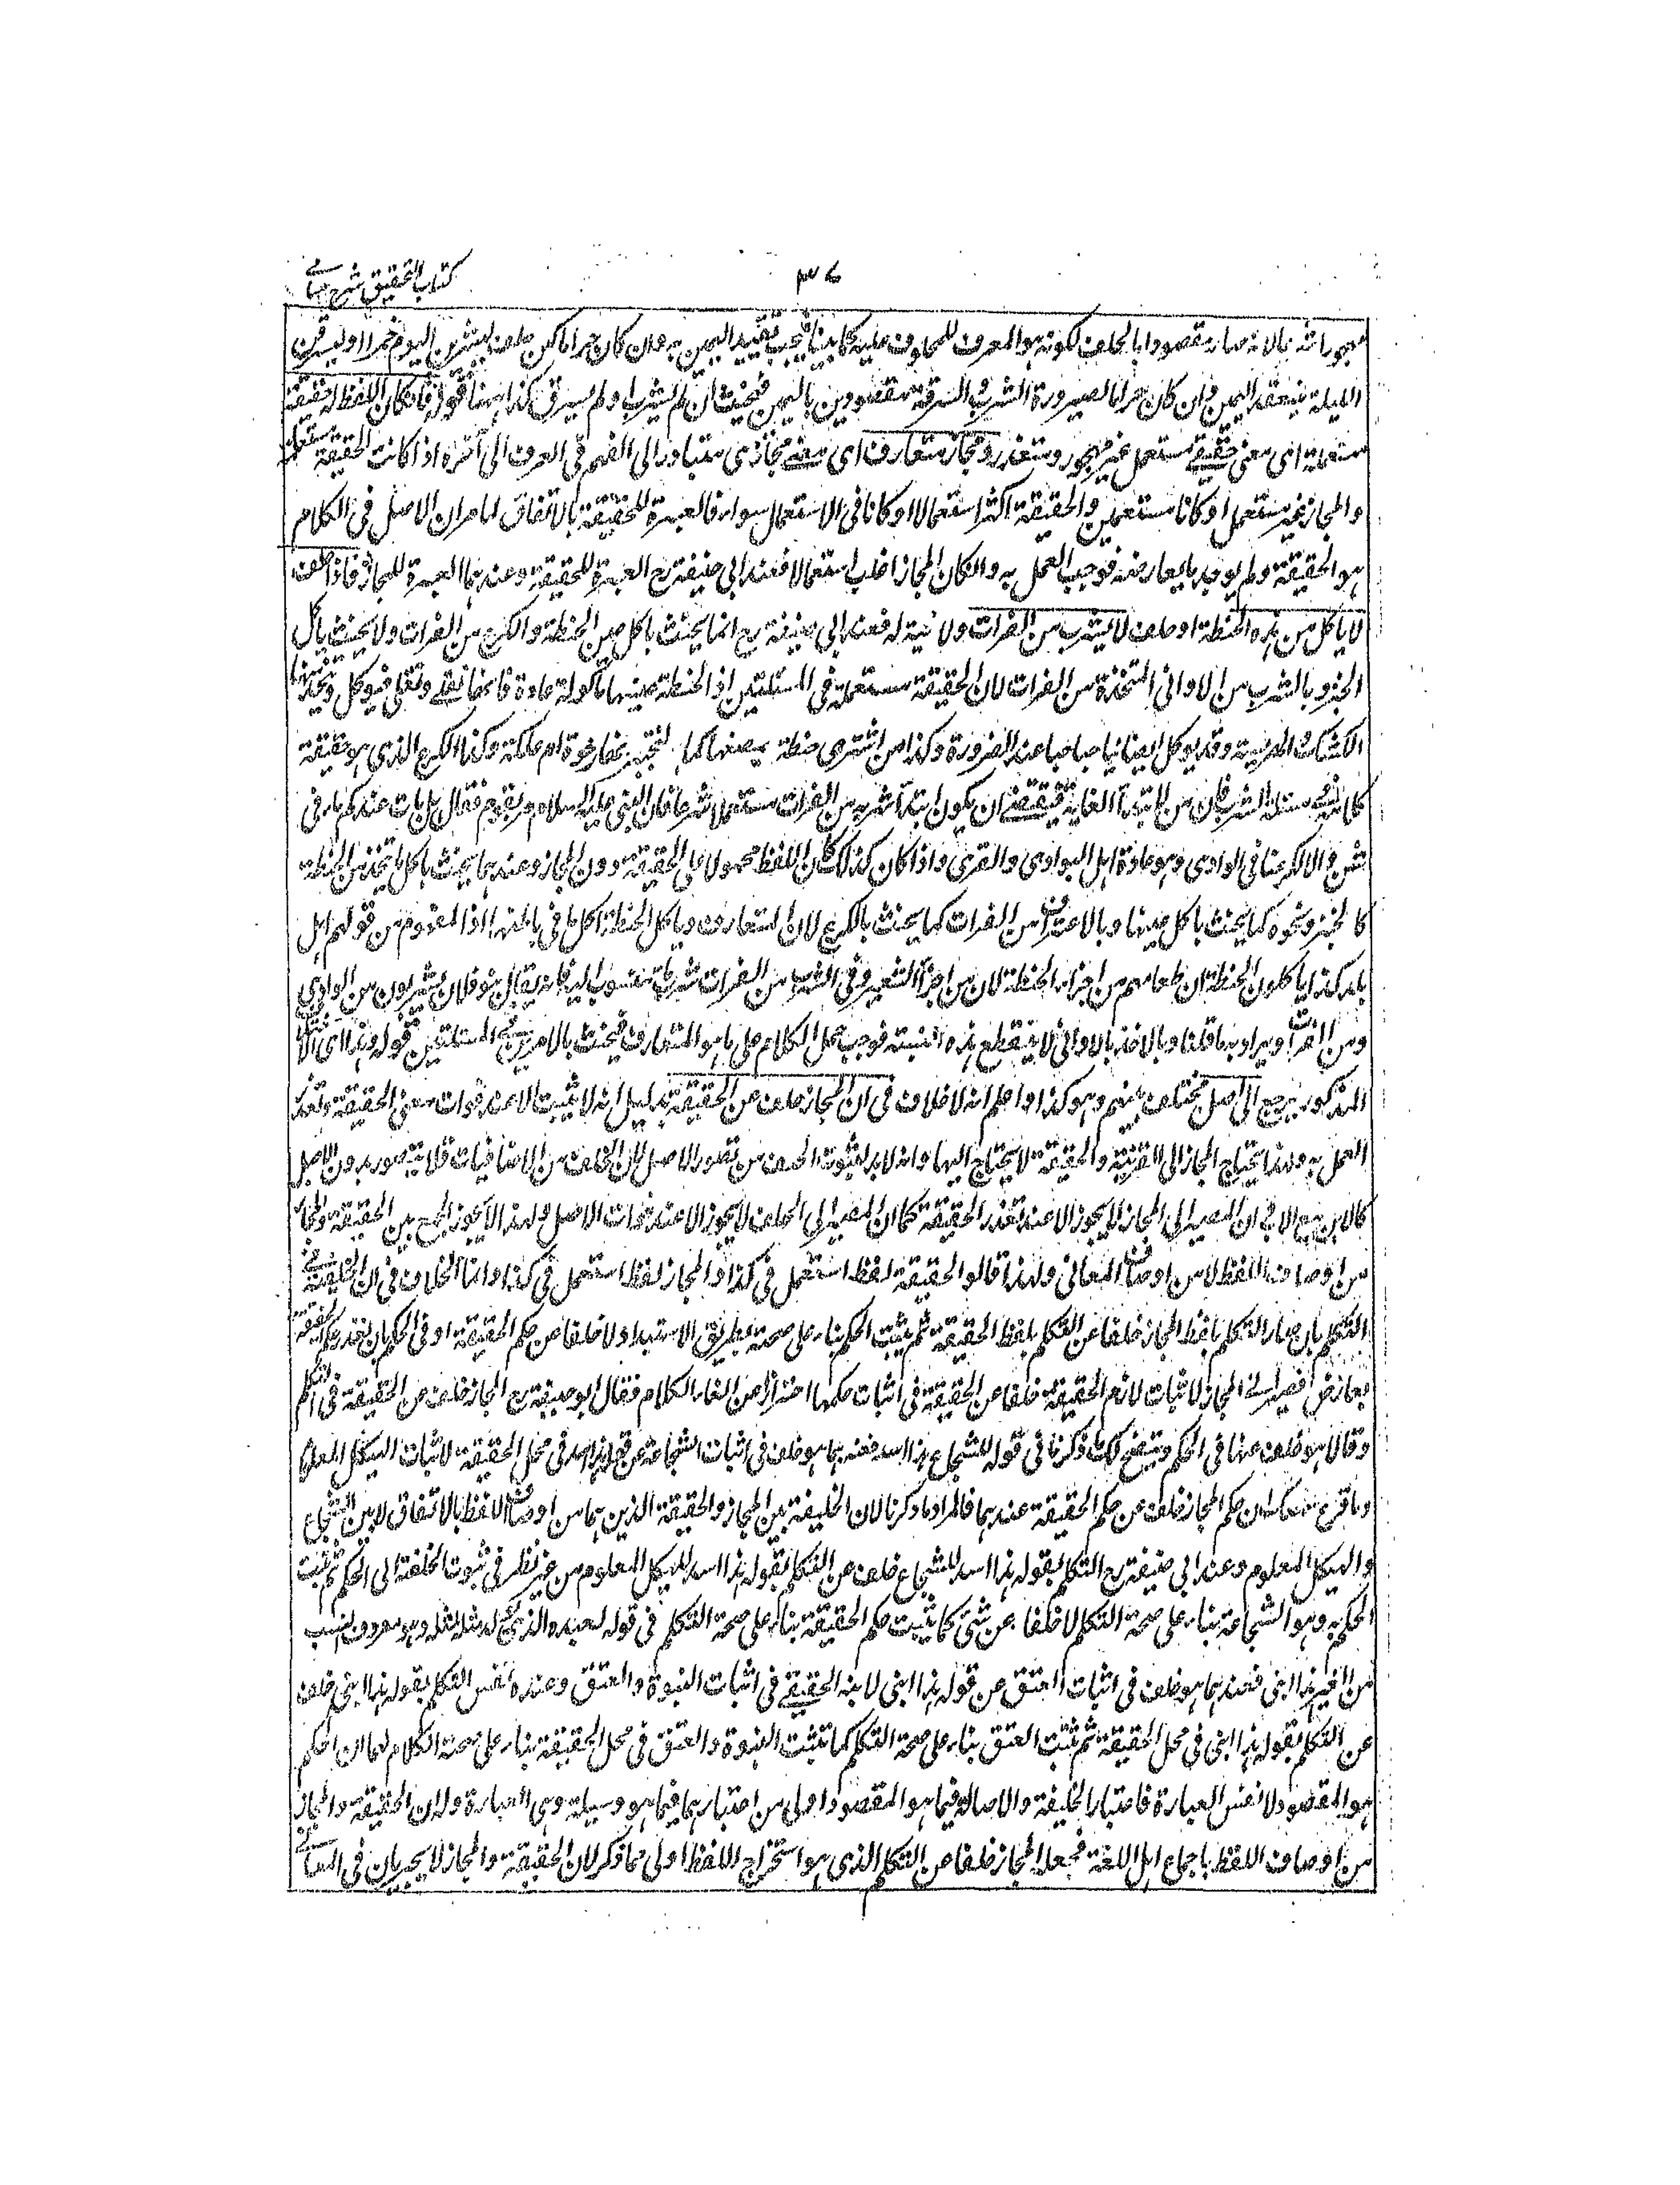 كتاب التحقيق شرح حسامى
٣٧
مهجورا شرعا لانه صار مقصودا بالحلف لكونه هو المعرف للمحلوف عليه كما بينا فيجب تقييد اليمين به وان كان حراما كمن حلف ليشربن اليوم خمرا او ليسرقن
الليلة ينعقد اليمين وان كان حراما لصيرورة الشرب والسرقة مقصودين باليمين فيحنث ان لم يشرب او لم يسرق كذا ههنا قوله فان كان اللفظ له حقيقة
مستعملة اى معنى حقيقے مستعمل غير مهجور ومتعذر ومجاز متعارف اى معنے مجازى متبادر الى الفهم فى العرف الى آخره اذا كانت الحقيقة مستعملة
والمجاز غير مستعمل او كانا مستعملين والحقيقة اكثر استعمالا او كانا فى الاستعمال سواء فالعبرة للحقيقة بالاتفاق لما مر ان الاصل فى الكلام
هو الحقيقة ولم يوجد ما يعارضه فوجب العمل به وان كان المجاز اغلب استعمالا فعند ابى حنيفة رح العبرة للحقيقة وعندهما العبرة للمجاز فاذا حلف
لا ياكل من هذه الحنطة او حلف لا يشرب من الفرات ولا نية له فعند ابى حنيفة رح انما يحنث باكل عين الحنطة والكرع من الفرات ولا يحنث باكل
الخبز وبالشرب من الاوانى المتخذة من الفرات لان الحقيقة مستعملة فى المسئلتين اذ الحنطة عينها ماكولة عادة فانها تقلے وتغلى فتوكل ويتخذ منها
الكشك والهريسة وقد يوكل ايضا نيا حبا حبا عند الضرورة وكذا من اشترى حنطة يمضغها كما لمختبر بخفا رخوة ام علكة وكذا الكرع الذى هو حقيقة
كلامه فى مسئلة الشرب فان من لابتداء الغاية فيقتضے ان يكون ابتداء شربه من الفرات مستعملا شرعا فان النبى عليه السلام مر بقوم فقال هل بات عندكم ماء فى
شن والا كرعنا فى الوادى وهو عادة اهل البوادى والقرى واذا كان كذلك كان اللفظ محمولا على الحقيقة دون المجاز وعندهما يحنث باكل ما يتخذ من الحنطة
كالخبز ونحوه كما يحنث باكل عينها وبالاغتراف من الفرات كما يحنث بالكرع لان المتعارف وياكل الحنطة اكل ما فى باطنها اذ المفهوم من قولهم اهل
بلد كذا ياكلون الحنطة ان طعامهم من اجزاء الحنطة لا من اجزاء الشعير وفى الشرب من الفرات شرب ماء منسوب اليه فانه يقال بنو فلان يشربون من الوادى
ومن الفرات ويراد به ما قلنا وبالاخذ بالاوانى لا ينقطع هذه النسبة فوجب حمل الكلام على ما هو المتعارف فيحنث بالامرين فى المسئلتين قوله وهذا اى
المذكور يرجع الى اصل مختلف بينهم وهو كذا واعلم انه لا خلاف فى ان المجاز خلف عن الحقيقة بدليل انه لا يثبت الا عند فوات معنى الحقيقة وتعذر
العمل به ولهذا يحتاج المجاز الى القرينة والحقيقة لا يحتاج اليها وانه لا بد لثبوت الخلف من تصور الاصل لان الخلف من الاضافيات فلا يتصور بدون الاصل
كالابن مع الاب ان المصير الى المجاز لا يجوز الا عند تعذر الحقيقة كما ان المصير الى الخلف لا يجوز الا عند فوات الاصل ولهذا لا يجوز الجمع بين الحقيقة والمجاز
من اوصاف اللفظ لا من اوصاف المعانى ولهذا قالوا الحقيقة لفظ استعمل فى كذا والمجاز لفظ استعمل فى كذا وانما الخلاف فى ان الخلفية فى
التكلم بان صار التكلم بلفظ المجاز خلفا عن التكلم بلفظ الحقيقة ثم يثبت الحكم بناء على صحته بطريق الاستبداد لا خلفا عن حكم الحقيقة او فى الحكم بان تعذر حكم الحقيقة
بعارض فصير الى المجاز لاثبات لازم الحقيقة خلفا عن الحقيقة فى اثبات حكمها احترازا عن الغاء الكلام فقال ابو حنيفة رح المجاز خلف عن الحقيقة فى التكلم
وقالا هو خلف عنها فى الحكم ويتضح لك ما ذكرنا فى قوله للشجاع هذا اسد فعندهما هو خلف فى اثبات الشجاعة عن قوله هذا اسد فى محل الحقيقة لاثبات الهيكل المعلوم
ان حكم المجاز خلف عن حكم الحقيقة عندهما فالمراد ما ذكرنا لان الخليفة بين المجاز والحقيقة الذين هما من اوصاف اللفظ بالاتفاق لا بين الشجاع
والهيكل المعلوم وعند ابى حنيفة رح التكلم بقوله هذا اسد للشجاع خلف عن التكلم بقوله هذا اسد للهيكل المعلوم من غير نظر فى ثبوت الخلفة الى الحكم ثم يثبت
الحكم به وهو الشجاعة بناء على صحة التكلم لا خلفا عن شئ كما يثبت حكم الحقيقة بناء على صحة التكلم فى قوله لعبده والذى يولد مثله لمثله وهو معروف النسب
من الغير هذا ابنى فعندهما هو خلف فى اثبات العتق عن قوله هذا ابنى لابنه الحقيقے فى اثبات البنوة والعتق وعنده نفس التكلم بقوله هذا ابنى خلف
عن التكلم بقوله هذا ابنى فى محل الحقيقة ثم يثبت العتق بناء على صحة التكلم كما تثبت البنوة والعتق فى محل الحقيقة بناء على صحة الكلام لهما ان الحكم
هو المقصود لا نفس العبارة فاعتبار الخليفة والاصالة فيما هو المقصود اولى من اعتبارهما فيما هو وسيلة وهى العبارة وله ان الحقيقة والمجاز
من اوصاف اللفظ باجماع اهل اللغة فجعل المجاز خلفا عن التكلم الذى هو استخراج اللفظ اولى مما ذكر لان الحقيقة والمجاز لا يجريان فى المعانے